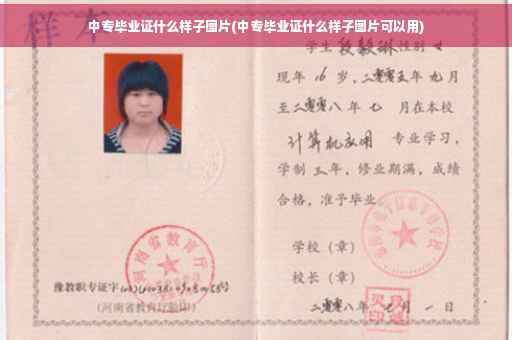 中专毕业证什么样子图片(中专毕业证什么样子图片可以用)
样本
学生 段毅琳 性别 女
现年 16 岁，二零零五年 九月
至二零零八年 七 月在本校
计算机应用 专业学习，
学制 三年，修业期满，成绩
合格，准予毕业
学校（章）
校长（章）
二零零八年 七月 一日
河南省教育厅
豫教职专证字
(河南省教育厅验印)